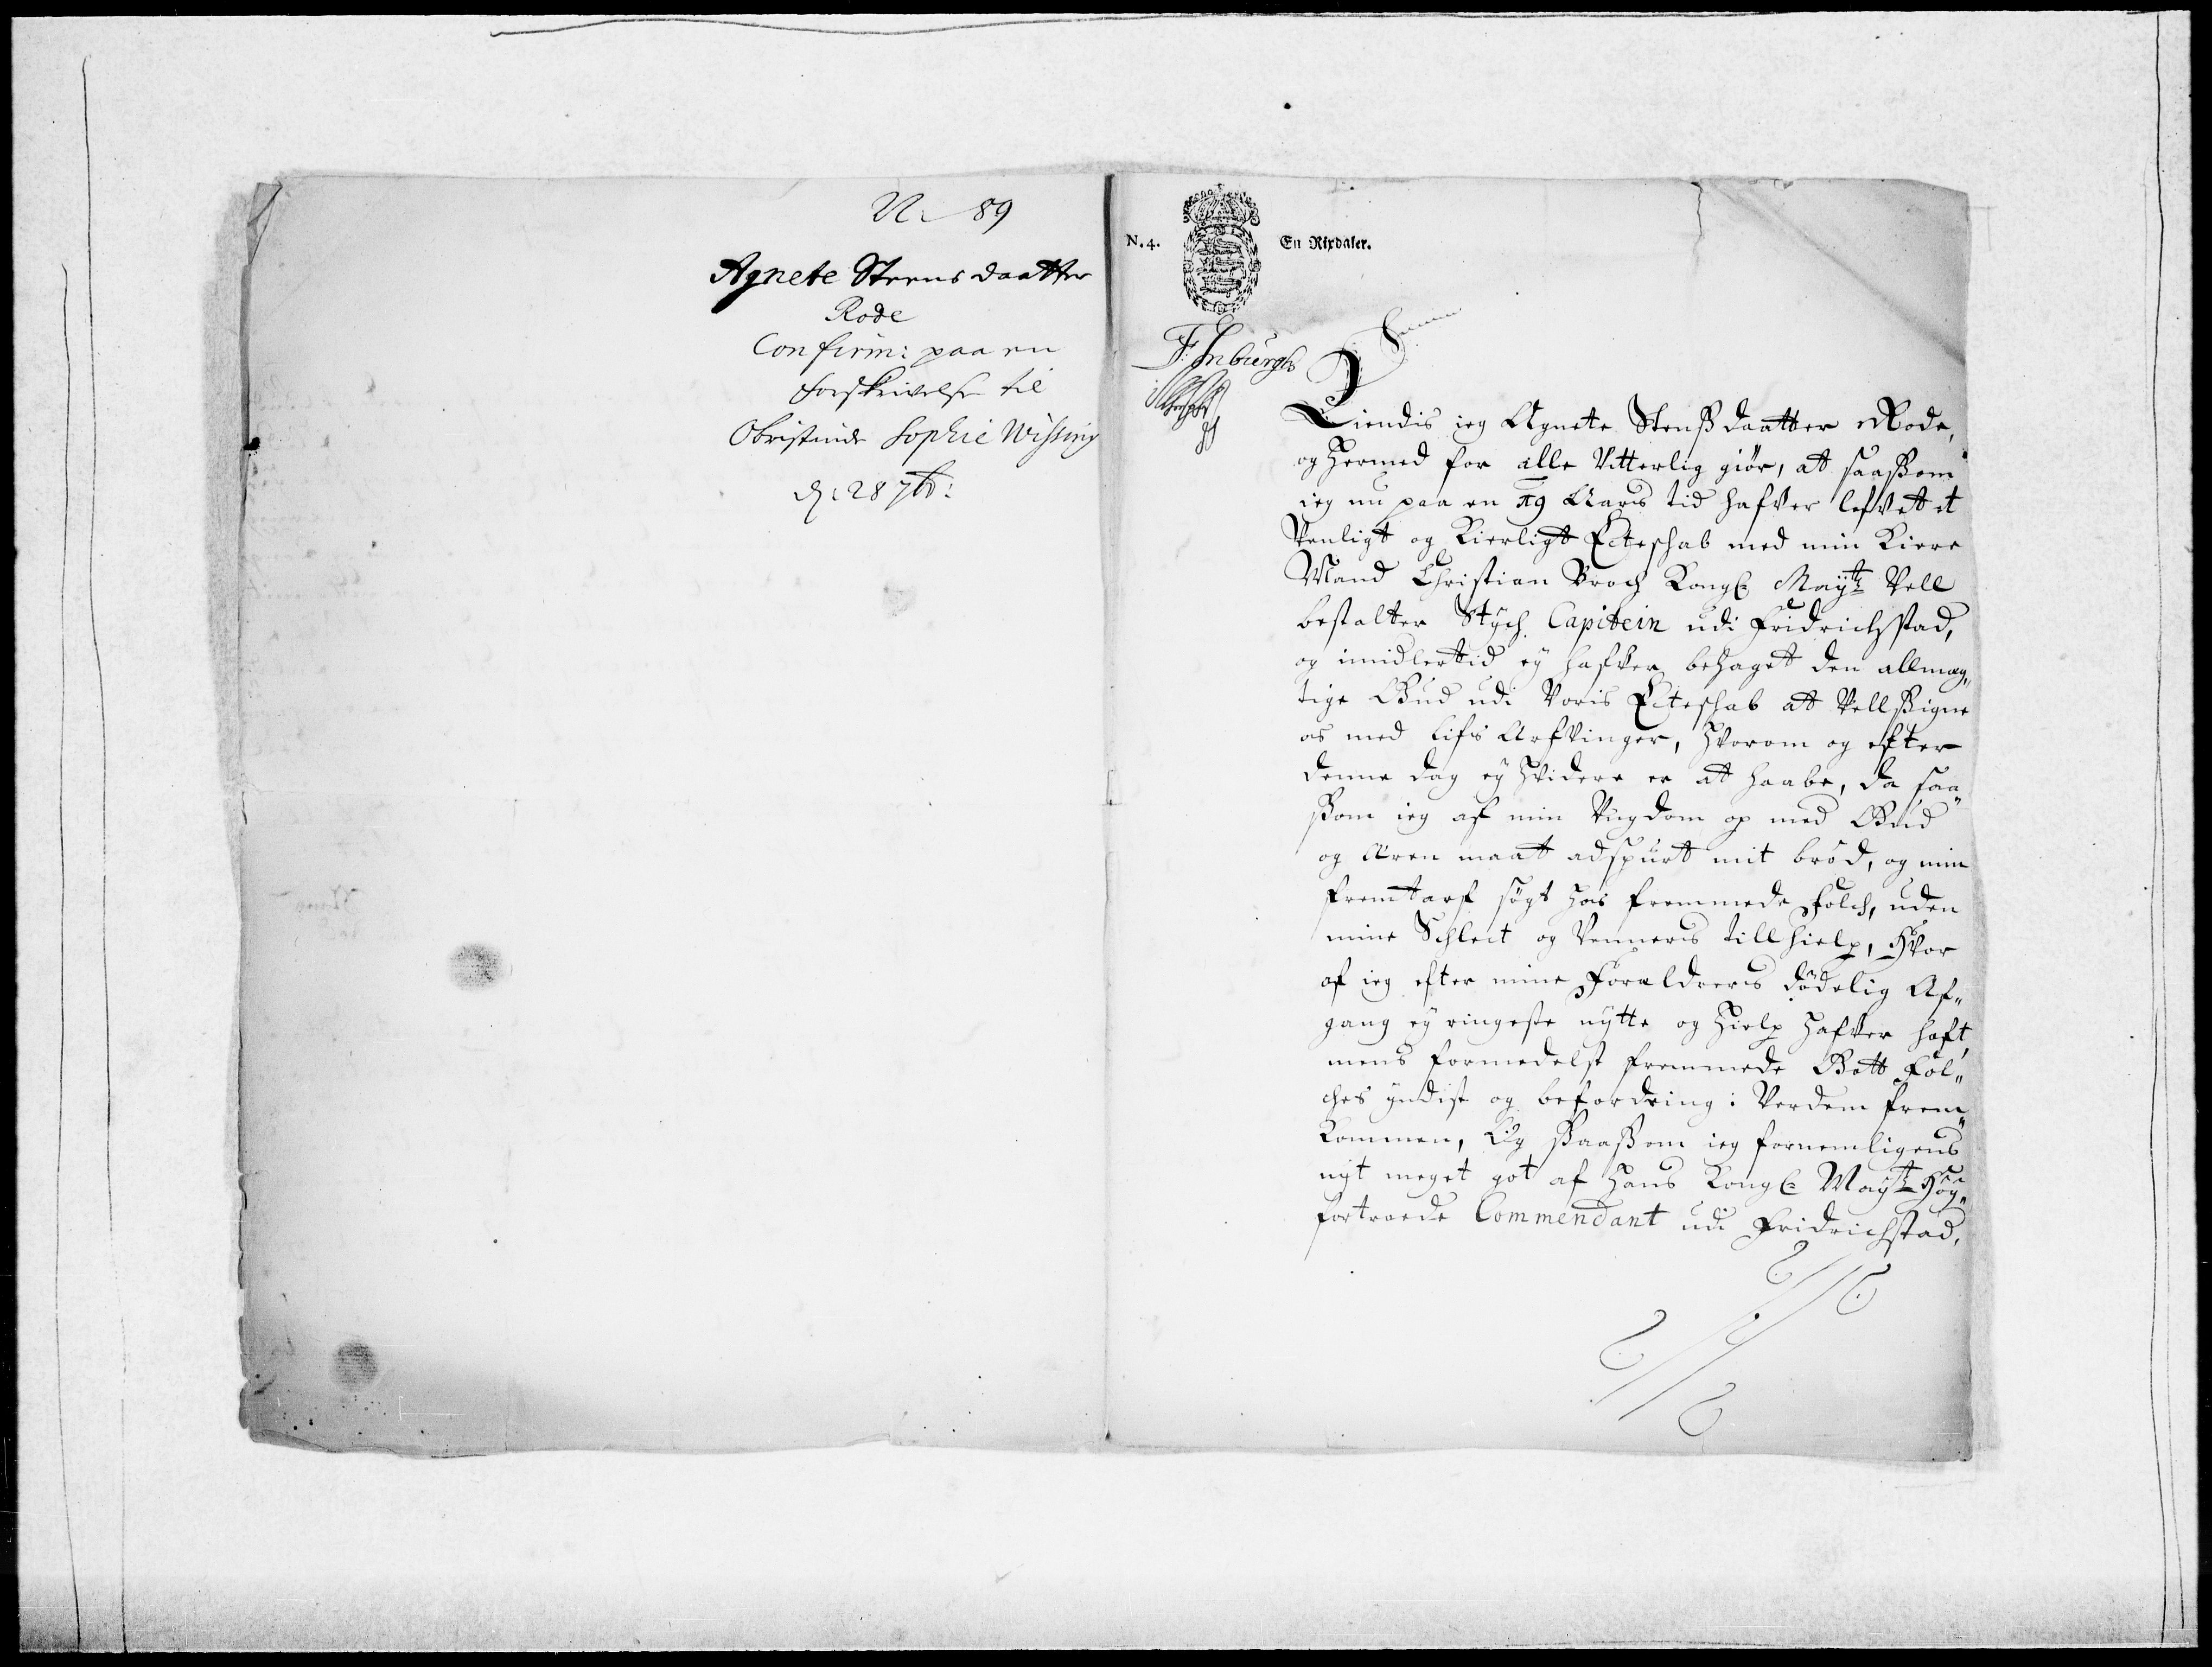 N. 89
Agnete Steensdaatter
Rode
Confirm: paa en
forskrivelse til
Obristinde Sophie Wissing
d: 28 7br:
N. 4.
En Rixdaler.
Kiendis ieg Agnete Stensdaatter Rode,
og hermed for alle Vitterlig giör, at saasom
ieg nu paa en 19 Aars tid hafver lefvet et
Venligt og Kierligt Ecteschab med min Kiere
Mand Christian Broch Kongl. Mayts Vell
bestalter Stych Capitein udi Fridrichstad,
og imidlertid ey hafver behaget den allmæg„
tige Gud udi Voris Ecteschab at Vellsigne
os med Lifs Arfvinger, hvorom og efter
denne dag ey Videre er at haabe, da saa„
som ieg af min Ungdom op med Gud
og Æren maat adspurt mit bröd, og min
fremtarf sögt hos fremmede Folch, uden
mine Schlect og Venners till hielp, Hvor
af ieg efter mine Foraeldrers dödelig Af„
gang ey ringeste nytte og Hielp hafver haft,
mens formedelst fremmede Gott Fol„
ches yndist og befordring i Verden frem„
kommen, Og saasom ieg fornemligens
nyt meget got af Hans Kongl. Mayts Höy„
fortroede Commendant udi Fridrichstad,